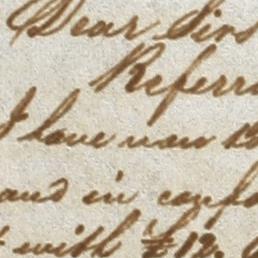 Dear Sirs
Referr
I have now th
and in confo
with £12.